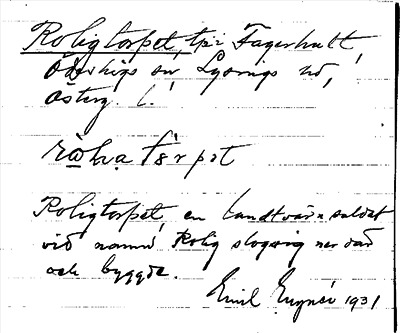 Roligtorpet, tpr Fagerhult,
Öderhögs sn Lysings hd,
Österg. l.
ròli̯a tɜ̀rpət
Roligtorpet, en landtvärnsoldat
vid namn Rolig slog sig ner där
och byggde.
Emil 1931